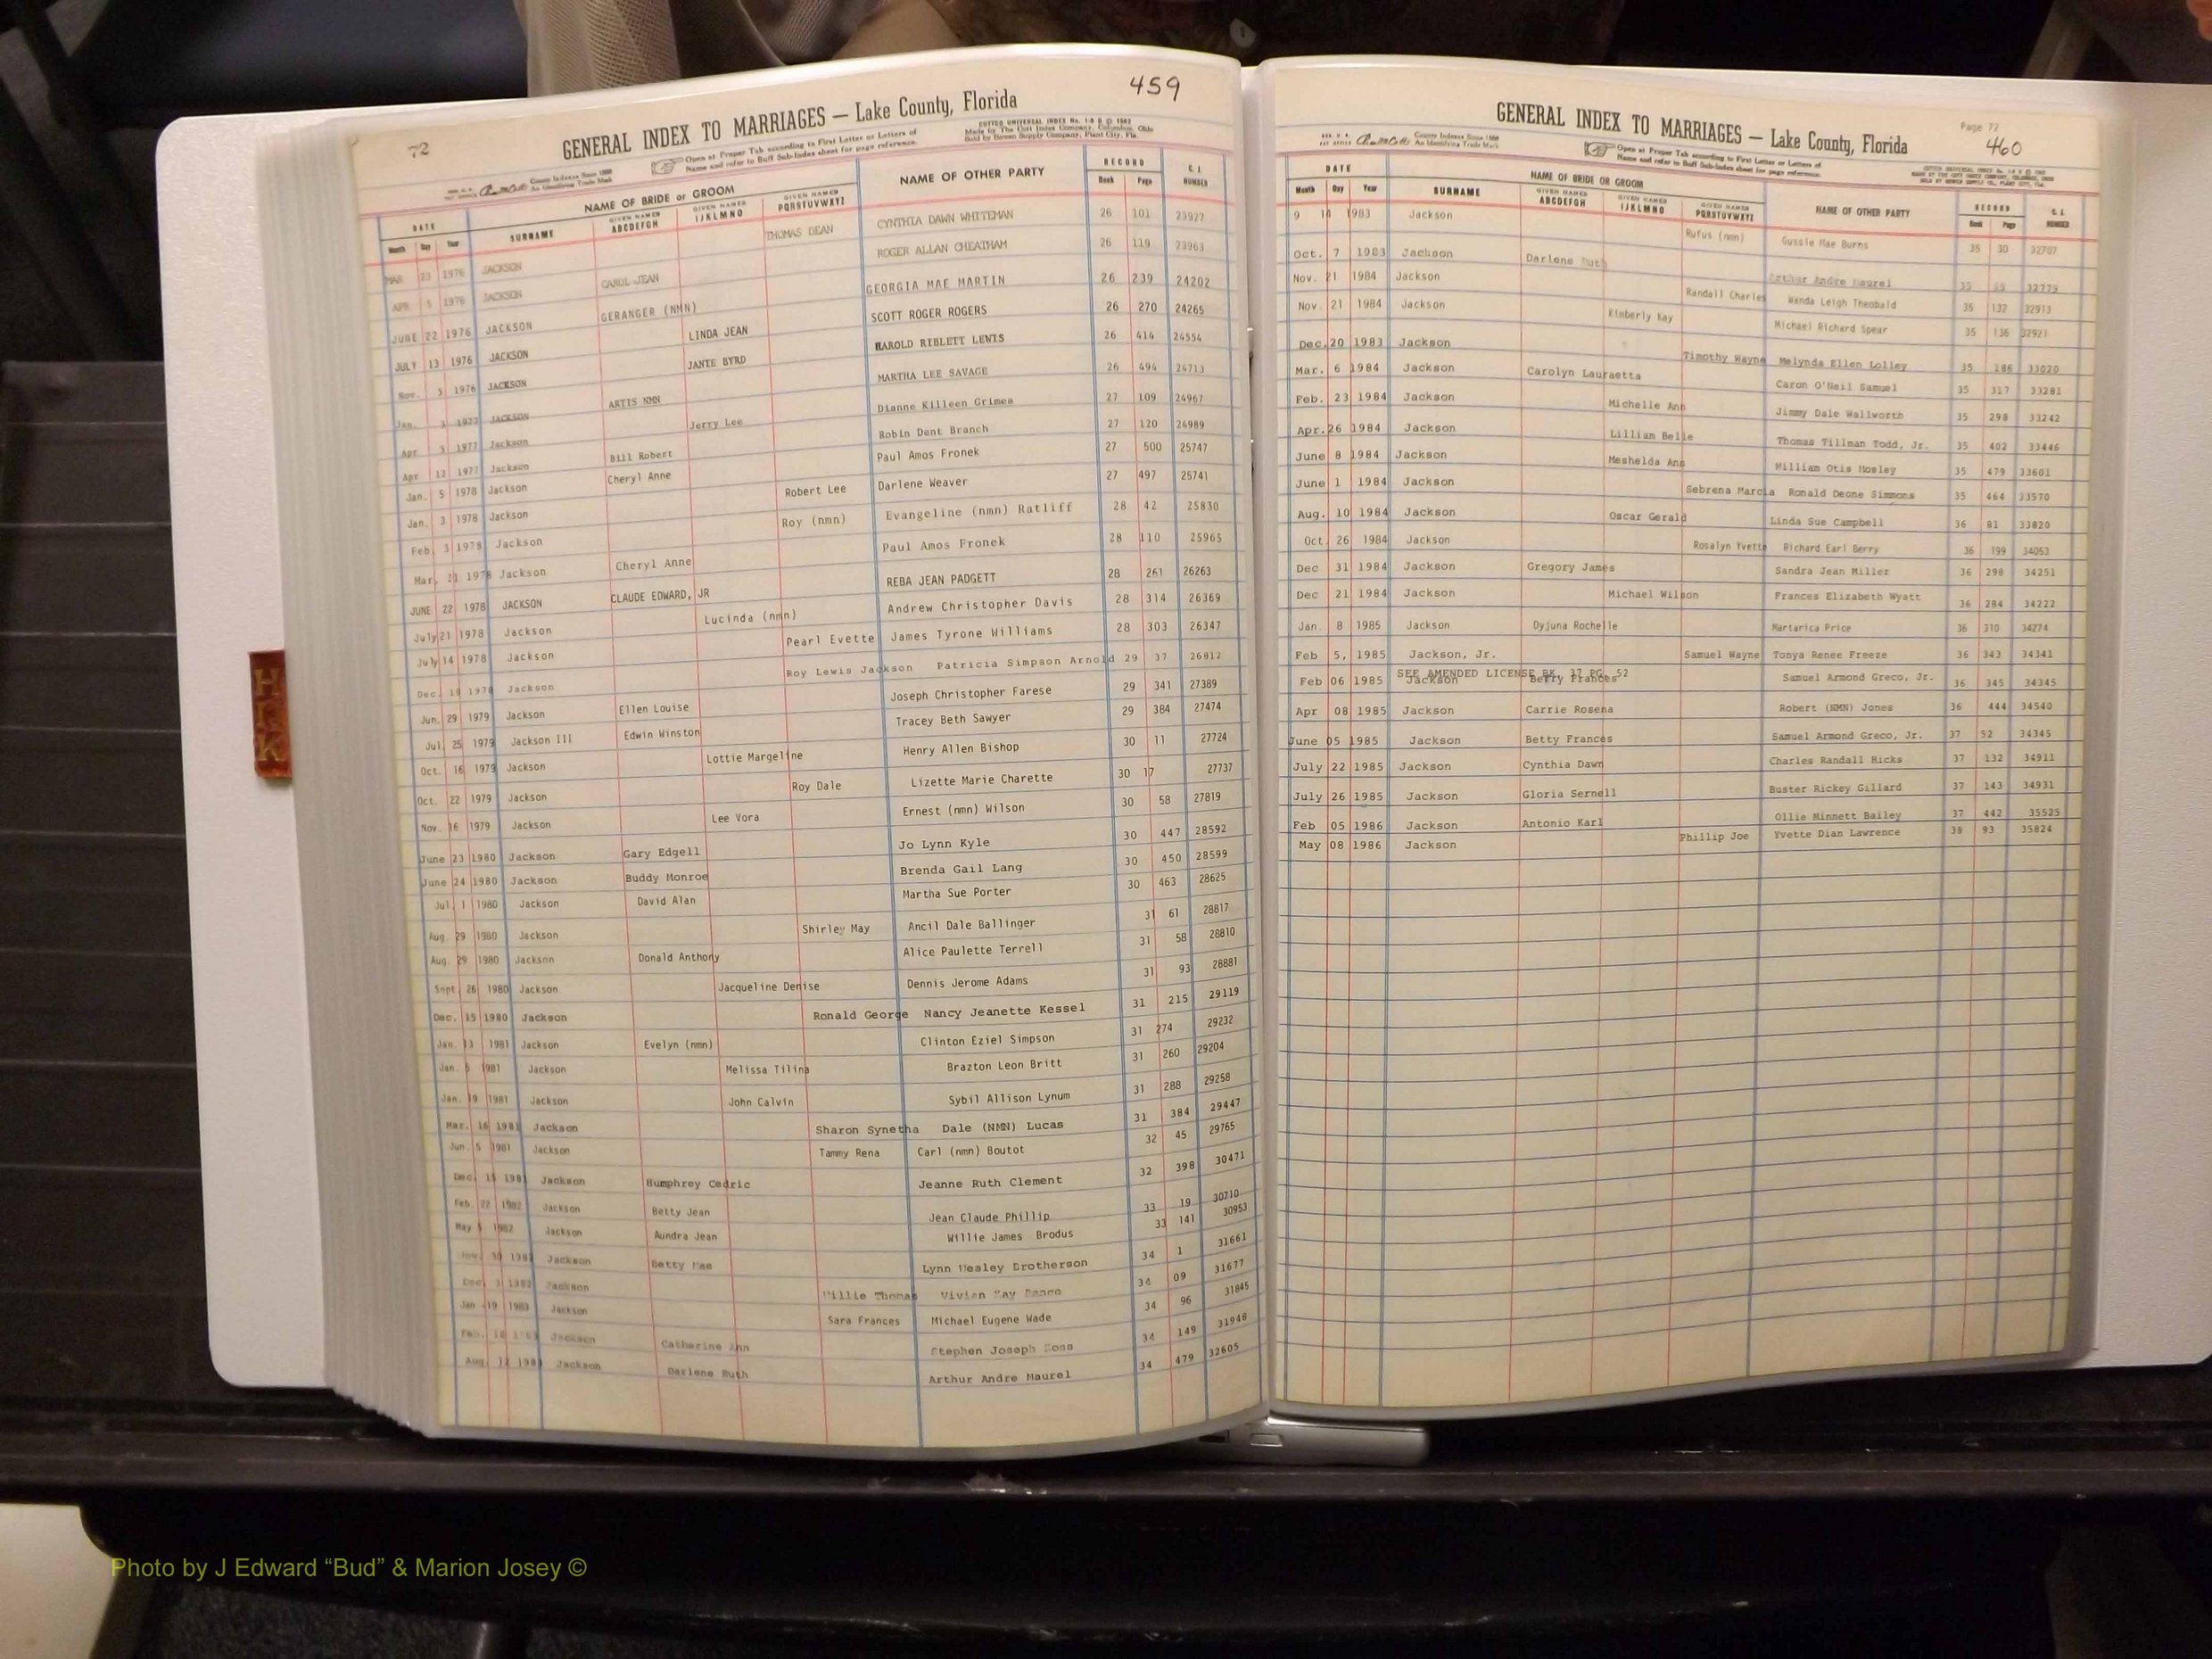 459
72
GENERAL INDEX TO MARRIAGES — Lake County, Florida
Open at Proper Tab according to First Letter or Letters of
Name and refer to Buff Sub-Index sheet for page reference.
COTTCO UNIVERSAL INDEX
Made by The Cott Index Company, Columbus, Ohio
Sold by Bowen Supply Company, Plant City, Fla.
County Indexes Since 1888
An Identifying Trade Mark
DATE NAME OF BRIDE or GROOM NAME OF OTHER PARTY RECORD
Month Day Year SURNAME GIVEN NAMES ABCDEFGH GIVEN NAMES IJKLMNO GIVEN NAMES PQRSTUVWXYZ Book Page NUMBER
MAR 23 1976 JACKSON THOMAS DEAN CYNTHIA DAWN WHITEMAN 26 101 23927
APR 5 1976 JACKSON CAROL JEAN ROGER ALLAN CHEATHAM 26 119 23963
JUNE 22 1976 JACKSON GERANGER (NMN) GEORGIA MAE MARTIN 26 239 24202
JULY 13 1976 JACKSON LINDA JEAN SCOTT ROGER ROGERS 26 270 24265
Nov. 5 1976 JACKSON JANTE BYRD HAROLD RIBLETT LEWIS 26 414 24554
Jan. 1977 JACKSON ARTIS NMN MARTHA LEE SAVAGE 26 494 24713
Apr 5 1977 Jackson Jerry Lee Dianne Killeen Grimes 27 109 24967
Apr 12 1977 Jackson Bill Robert Robin Dent Branch 27 120 24989
Jan. 5 1978 Jackson Cheryl Anne Paul Amos Fronek 27 500 25747
Jan. 3 1978 Jackson Robert Lee Darlene Weaver 27 497 25741
Feb 3 1978 Jackson Roy (nmn) Evangeline (nmn) Ratliff 28 42 25830
Mar. 21 1978 Jackson Cheryl Anne Paul Amos Fronek 28 110 25965
JUNE 22 1978 JACKSON CLAUDE EDWARD, JR REBA JEAN PADGETT 28 261 26263
July 21 1978 Jackson Lucinda (nmn) Andrew Christopher Davis 28 314 26369
July 14 1978 Jackson Pearl Evette James Tyrone Williams 28 303 26347
Dec. 1978 Jackson Roy Lewis Jackson Patricia Simpson Arnold 29 37 26812
Jun. 29 1979 Jackson Ellen Louise Joseph Christopher Farese 29 341 27389
Jul 25 1979 Jackson III Edwin Winston Tracey Beth Sawyer 29 384 27474
Oct. 16 1979 Jackson Lottie Margeline Henry Allen Bishop 30 11 27724
Oct. 22 1979 Jackson Roy Dale Lizette Marie Charette 30 17 27737
Nov. 16 1979 Jackson Lee Vora Ernest (nmn) Wilson 30 58 27819
June 23 1980 Jackson Gary Edgell Jo Lynn Kyle 30 447 28592
June 24 1980 Jackson Buddy Monroe Brenda Gail Lang 30 450 28599
Jul 1 1980 Jackson David Alan Martha Sue Porter 30 463 28625
Aug. 29 1980 Jackson Shirley May Ancil Dale Ballinger 31 61 28817
Aug. 29 1980 Jackson Donald Anthony Alice Paulette Terrell 31 58 28810
Sept. 26 1980 Jackson Jacqueline Denise Dennis Jerome Adams 31 93 28881
Dec. 15 1980 Jackson Ronald George Nancy Jeanette Kessel 31 215 29119
Jan. 13 1981 Jackson Evelyn (nmn) Clinton Eziel Simpson 31 274 29232
Jan. 1981 Jackson Melissa Tilina Brazton Leon Britt 31 260 29204
Jan. 19 1981 Jackson John Calvin Sybil Allison Lynum 31 288 29258
Mar. 16 1981 Jackson Sharon Synetha Dale (NMN) Lucas 31 384 29447
Jun. 5 1981 Jackson Tammy Rena Carl (nmn) Boutot 32 45 29765
Dec. 1981 Jackson Humphrey Cedric Jeanne Ruth Clement 32 398 30471
Feb. 22 1982 Jackson Betty Jean Jean Claude Phillip 33 19 30710
May 1982 Jackson Aundra Jean Willie James Brodus 33 141 30953
30 1982 Jackson Betty Mae Lynn Wesley Brotherson 34 1 31661
Dec. 3 1982 Jackson Willie Thomas Vivian Kay 34 09 31677
Jan 19 1983 Jackson Sara Frances Michael Eugene Wade 34 96 31845
Feb. Jackson Catherine Ann Stephen Joseph 34 149 31948
Aug. 12 1983 Jackson Darlene Ruth Arthur Andre Maurel 34 479 32605
HIJK
Page 72
460
GENERAL INDEX TO MARRIAGES — Lake County, Florida
County Indexes Since 1888
An Identifying Trade Mark
Open at Proper Tab according to First Letter or Letters of
Name and refer to Buff Sub-Index sheet for page reference.
DATE NAME OF BRIDE OR GROOM NAME OF OTHER PARTY RECORD
Month Day Year SURNAME GIVEN NAMES ABCDEFGH GIVEN NAMES IJKLMNO GIVEN NAMES PQRSTUVWXYZ Book Page NUMBER
9 14 1983 Jackson Rufus (nmn) Gussie Mae Burns 35 30 32707
Oct. 7 1983 Jackson Darlene Ruth Arthur Andre Maurel 35 32779
Nov. 21 1984 Jackson Randall Charles Wanda Leigh Theobald 35 132 32913
Nov. 21 1984 Jackson Kimberly Kay Michael Richard Spear 35 136 32921
Dec. 20 1983 Jackson Timothy Wayne Melynda Ellen Lolley 35 186 33020
Mar. 6 1984 Jackson Carolyn Lauraetta Caron O'Neil Samuel 35 317 33281
Feb. 23 1984 Jackson Michelle Ann Jimmy Dale Wallworth 35 298 33242
Apr. 26 1984 Jackson Lilliam Belle Thomas Tillman Todd, Jr. 35 402 33446
June 8 1984 Jackson Meshelda Ann William Otis Mosley 35 479 33601
June 1 1984 Jackson Sebrena Marcia Ronald Deone Simmons 35 464 33570
Aug. 10 1984 Jackson Oscar Gerald Linda Sue Campbell 36 81 33820
Oct 26 1984 Jackson Rosalyn Yvette Richard Earl Berry 36 199 34053
Dec 31 1984 Jackson Gregory James Sandra Jean Miller 36 298 34251
Dec 21 1984 Jackson Michael Wilson Frances Elizabeth Wyatt 36 284 34222
Jan. 8 1985 Jackson Dyjuna Rochelle Martarica Price 36 310 34274
Feb 5, 1985 Jackson, Jr. Samuel Wayne Tonya Renee Freeze 36 343 34341
SEE AMENDED LICENSE BK. 37 PG. 52
Feb 06 1985 Jackson Betty Frances Samuel Armond Greco, Jr. 36 345 34345
Apr 08 1985 Jackson Carrie Rosena Robert (NMN) Jones 36 444 34540
June 05 1985 Jackson Betty Frances Samuel Armond Greco, Jr. 37 52 34345
July 22 1985 Jackson Cynthia Dawn Charles Randall Hicks 37 132 34911
July 26 1985 Jackson Gloria Sernell Buster Rickey Gillard 37 143 34931
Feb 05 1986 Jackson Antonio Karl Ollie Minnett Bailey 37 442 35525
May 08 1986 Jackson Phillip Joe Yvette Dian Lawrence 38 93 35824
Photo by J Edward “Bud” & Marion Josey ©